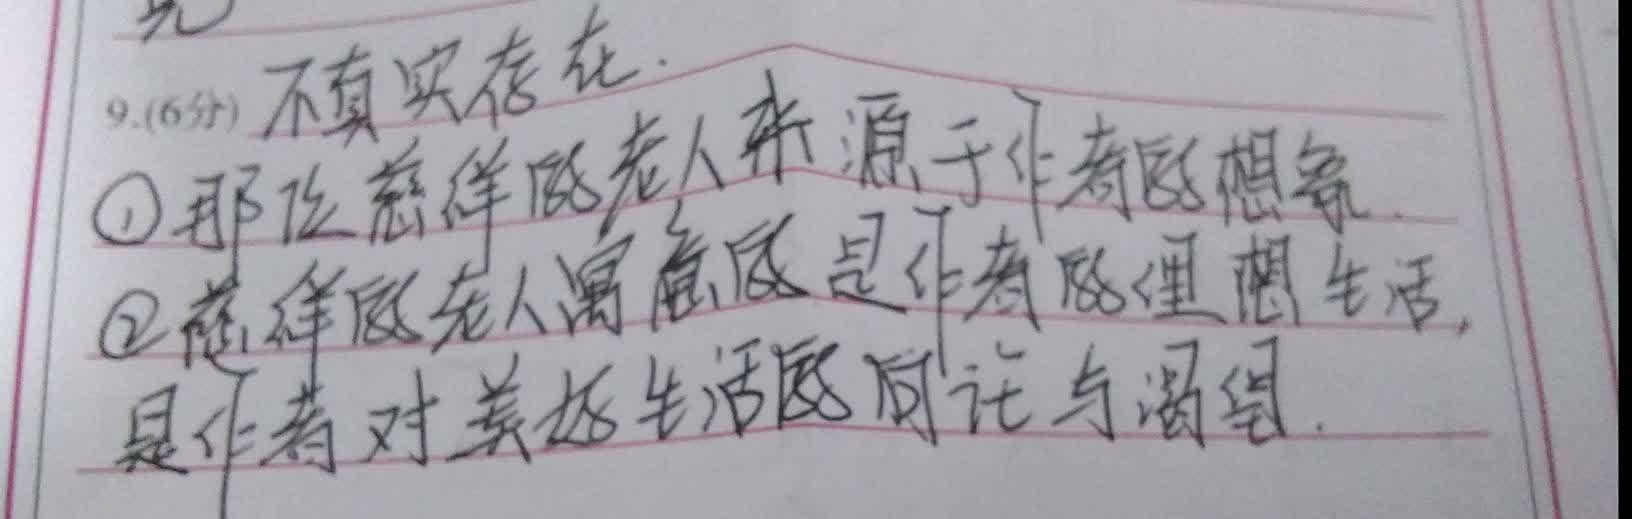 9.(6分) 不真实存在.
①那位慈祥的老人来源于作者的想象.
②慈祥的老人寓意的是作者的理想生活,
是作者对美好生活的向往与渴望.